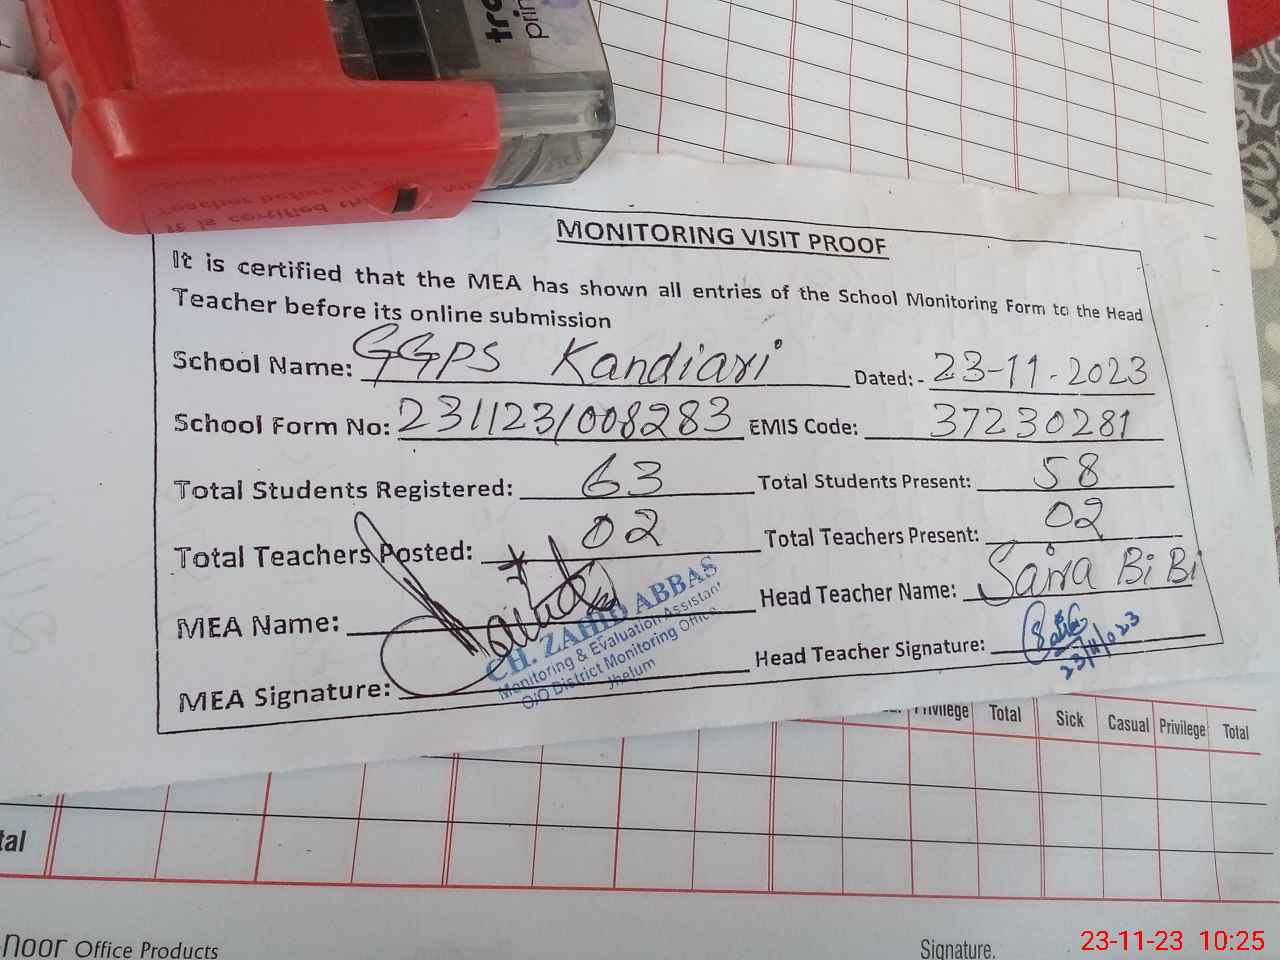 tro
prin
MONITORING VISIT PROOF
It is certified that the MEA has shown all entries of the School Monitoring Form to the Head
Teacher before its online submission
School Name: GGPS Kandiari Dated: - 23-11-2023
School Form No: 231123/008283 EMIS Code: 37230281
Total Students Registered: 63 Total Students Present: 58
Total Teachers Posted: 02 Total Teachers Present: 02
MEA Name: Head Teacher Name: Saira BiBi
MEA Signature: Head Teacher Signature:
23/11/023
CH. ZAHID ABBAS
Monitoring & Evaluation Assistant
O/O District Monitoring Office
Jhelum
Privilege Total Sick Casual Privilege Total
tal
noor Office Products Signature.
23-11-23 10:25